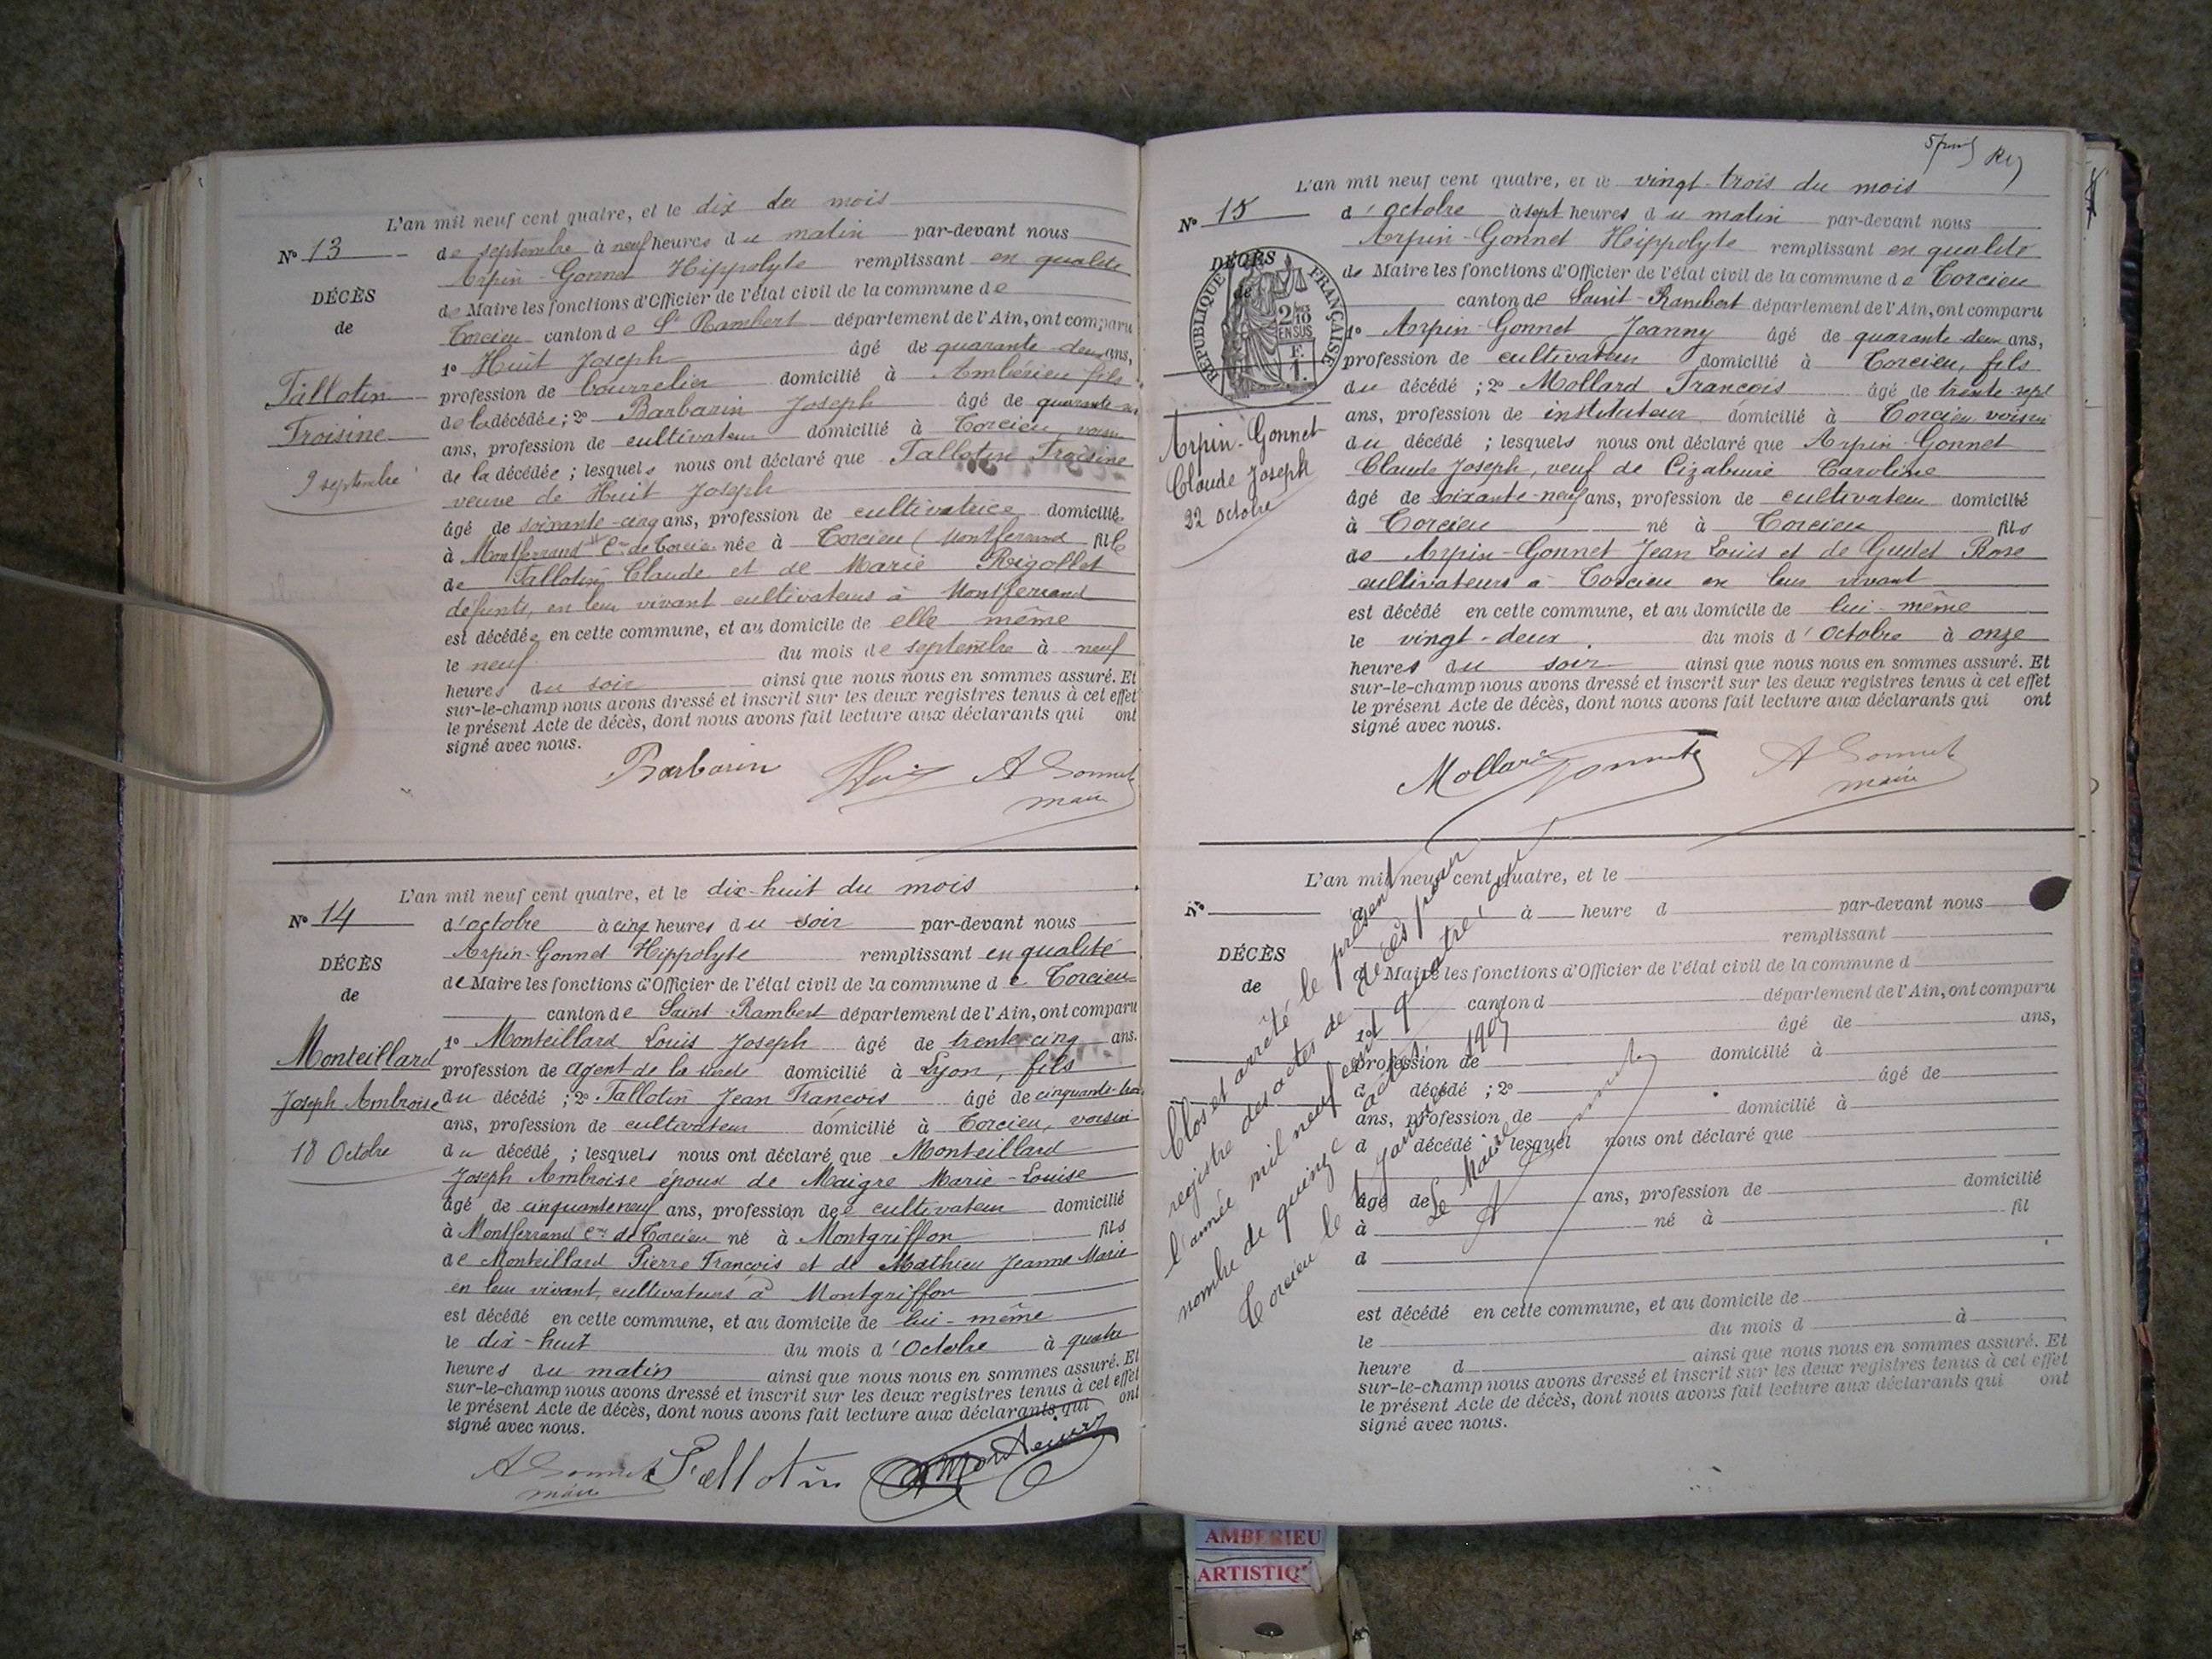 L'an mil neuf cent quatre, et le dix du mois
N° 13
de septembre à neuf heures du matin par-devant nous
Arpin-Gonnet Hippolyte remplissant en qualité
DÉCÈS
de
de Maire les fonctions d'Officier de l'état civil de la commune de
Torcieu canton de St Rambert département de l'Ain, ont comparu
1° Huit Joseph âgé de quarante-deux ans,
Tallotin
Froisine
9 septembre
profession de bourrelier domicilié à Ambérieu fils
de la décédée ; 2° Barbarin Joseph âgé de quarante-
ans, profession de cultivateur domicilié à Torcieu voisin
de la décédée ; lesquels nous ont déclaré que Tallotin Froisine
veuve de Huit Joseph
âgé de soixante-cinq ans, profession de cultivatrice domiciliée
à Montferrand Cne de Torcieu née à Torcieu (Montferrand fille
de Tallotin Claude et de Marie Rigollet
défunts, en leur vivant cultivateurs à Montferrand
est décédée en cette commune, et au domicile de elle même
le neuf du mois de septembre à neuf
heures du soir ainsi que nous nous en sommes assuré. Et
sur-le-champ nous avons dressé et inscrit sur les deux registres tenus à cet effet
le présent Acte de décès, dont nous avons fait lecture aux déclarants qui ont
signé avec nous.
Barbarin Huit A Gonnet
maire
L'an mil neuf cent quatre, et le dix-huit du mois
N° 14
d'octobre à cinq heures du soir par-devant nous
Arpin-Gonnet Hippolyte remplissant en qualité
DÉCÈS
de
de Maire les fonctions d'Officier de l'état civil de la commune de Torcieu
canton de Saint-Rambert département de l'Ain, ont comparu
Monteillard
Joseph Ambroise
18 Octobre
1° Monteillard Louis Joseph âgé de trente-cinq ans.
profession de agent de la sureté domicilié à Lyon, fils
du décédé ; 2° Tallotin Jean François âgé de cinquante-trois
ans, profession de cultivateur domicilié à Torcieu, voisin
du décédé ; lesquels nous ont déclaré que Monteillard
Joseph Ambroise époux de Maigre Marie-Louise
âgé de cinquante neuf ans, profession de cultivateur domicilié
à Montferrand Cne de Torcieu né à Montgriffon fils
de Monteillard Pierre François et de Mathieu Jeanne Marie
en leur vivant, cultivateurs à Montgriffon
est décédé en cette commune, et au domicile de lui-même
le dix-huit du mois d'Octobre à quatre
heures du matin ainsi que nous nous en sommes assuré. Et
sur-le-champ nous avons dressé et inscrit sur les deux registres tenus à cet effet
le présent Acte de décès, dont nous avons fait lecture aux déclarants qui ont
signé avec nous.
A Gonnet Tallotin
maire
L'an mil neuf cent quatre, et le vingt-trois du mois
N° 15
d'octobre à sept heures du matin par-devant nous
Arpin-Gonnet Hippolyte remplissant en qualité
DÉCÈS
de
RÉPUBLIQUE FRANÇAISE
de Maire les fonctions d'Officier de l'état civil de la commune de Torcieu
canton de Saint-Rambert département de l'Ain, ont comparu
1° Arpin-Gonnet Joanny âgé de quarante-deux ans,
profession de cultivateur domicilié à Torcieu, fils
Arpin-Gonnet
Claude Joseph
22 octobre
du décédé ; 2° Mollard François âgé de trente-sept
ans, profession de instituteur domicilié à Torcieu voisin
du décédé ; lesquels nous ont déclaré que Arpin-Gonnet
Claude Joseph, veuf de Caroline
âgé de soixante-neuf ans, profession de cultivateur domicilié
à Torcieu né à Torcieu fils
de Arpin-Gonnet Jean Louis et de Gudet Rose
cultivateurs à Torcieu en leur vivant
est décédé en cette commune, et au domicile de lui-même
le vingt-deux du mois d'Octobre à onze
heures du soir ainsi que nous nous en sommes assuré. Et
sur-le-champ nous avons dressé et inscrit sur les deux registres tenus à cet effet
le présent Acte de décès, dont nous avons fait lecture aux déclarants qui ont
signé avec nous.
Mollard Gonnet A Gonnet
maire
L'an mil neuf cent quatre, et le
N° à heure d par-devant nous
remplissant
DÉCÈS
de
d Maire les fonctions d'Officier de l'état civil de la commune d
canton d département de l'Ain, ont comparu
1° âgé de ans,
profession de domicilié à
d décédé ; 2° âgé de
ans, profession de domicilié à
d décédé lesquel nous ont déclaré que
âgé de ans, profession de domicilié
à né à fil
d
est décédé en cette commune, et au domicile de
le du mois d à
heure d ainsi que nous nous en sommes assuré. Et
sur-le-champ nous avons dressé et inscrit sur les deux registres tenus à cet effet
le présent Acte de décès, dont nous avons fait lecture aux déclarants qui ont
signé avec nous.
Clos et arrêté le présent
registre des actes de décès pour
l'année mil neuf cent quatre, au
nombre de quinze actes
Torcieu le 1 Janvier 1905
Le Maire
AMBERIEU
ARTISTIQ